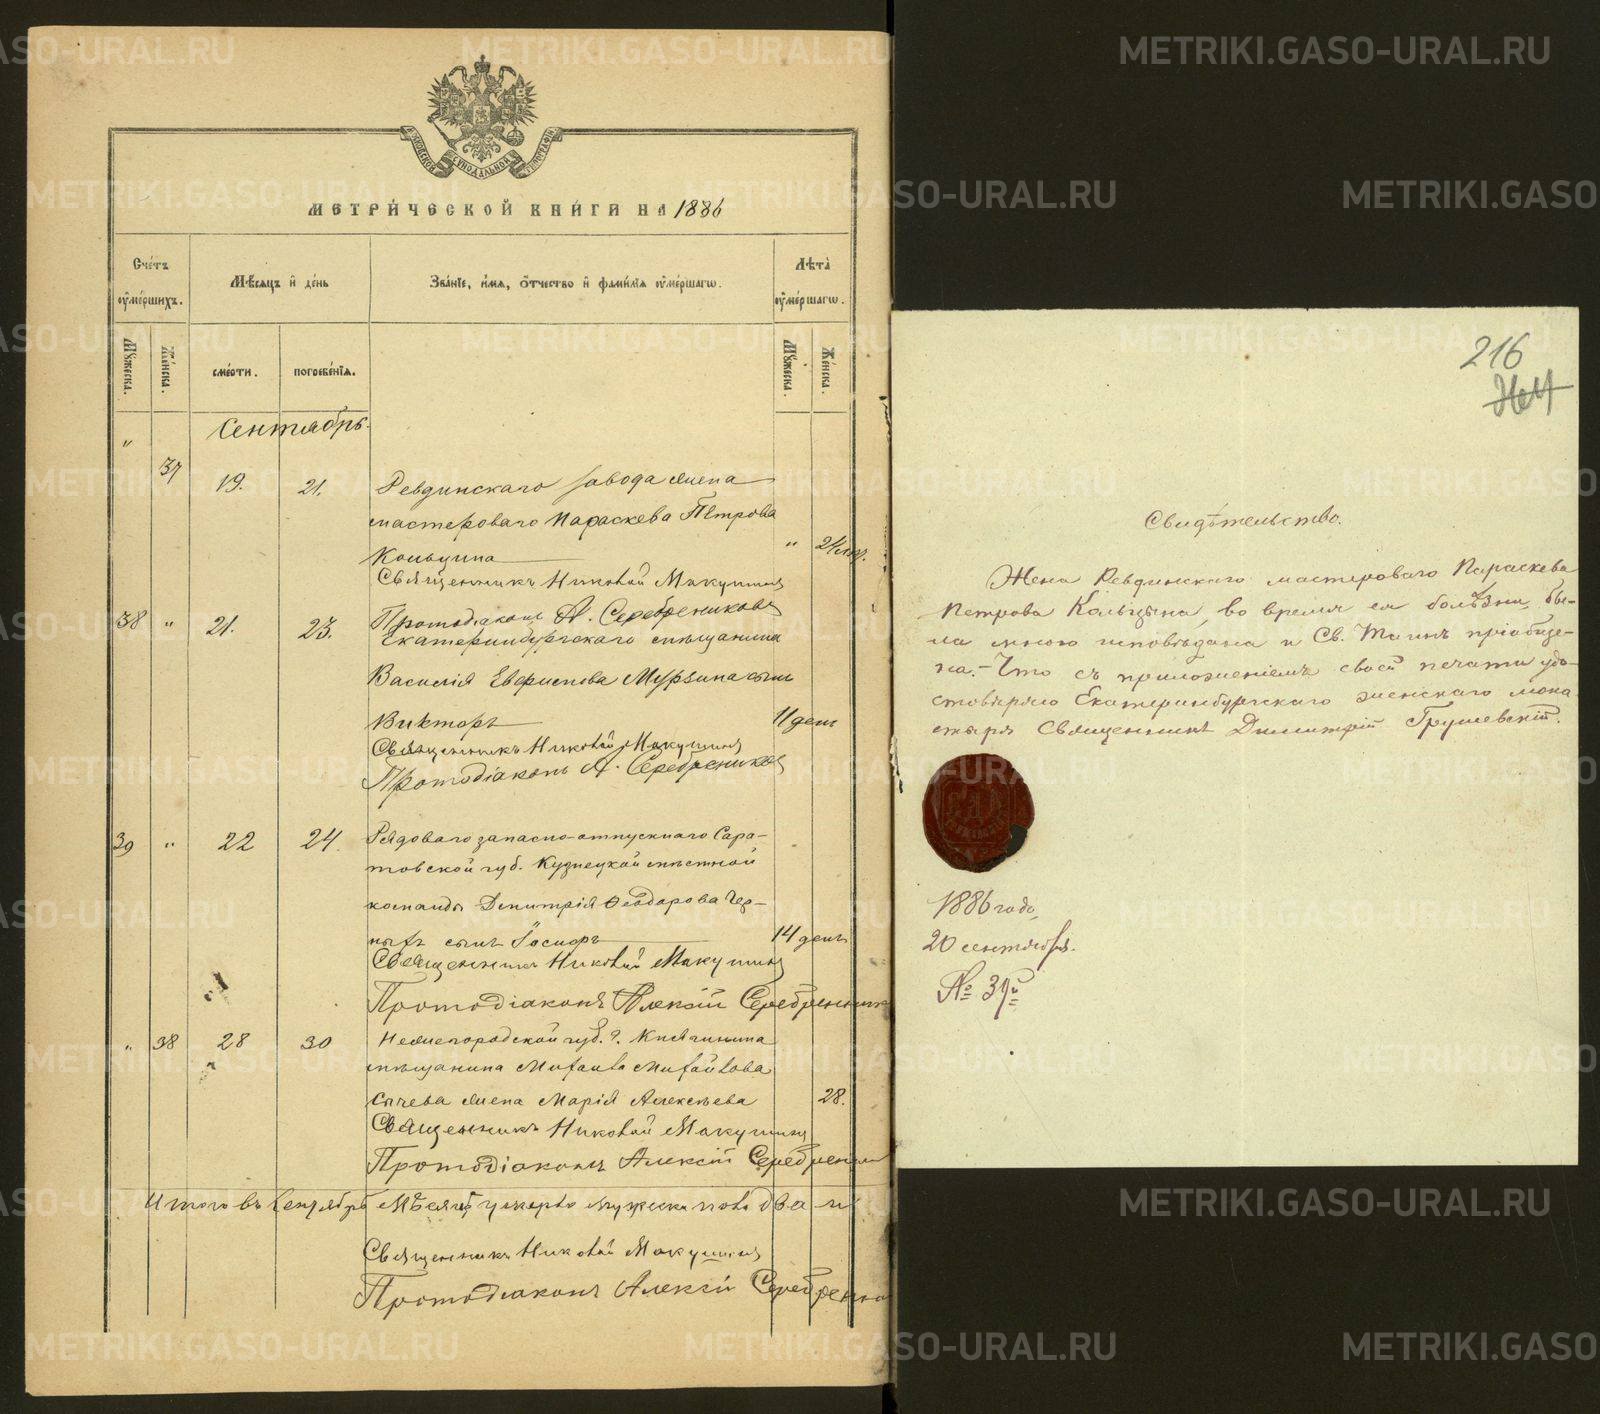 МОСКОВСКОЙ СУНОДАЛЬНОЙ ТУПОГРАФІИ
МЕТРИ́ЧЕСКОЙ КНИ́ГИ НА 1886
Сче́тъ оу҆ме́ршихъ.
Мѣ́сяцъ и҆ де́нь
Зва́нїе, и҆́мѧ, ѻ҆́тчество и҆ фами́лїѧ оу҆ме́ршагѡ.
Лѣта̀ оу҆ме́ршагѡ.
Мꙋ́жеска.
Же́нска.
сме́рти.
погребе́нїѧ.
Мꙋ́жеска.
Же́нска.
Сентябрь.
" 37 19. 21. Ревдинскаго завода жена
мастероваго Параскева Петрова
Кольцина " 24
Священникъ Николай Макушинъ
Протодіаконъ А. Серебрениковъ
38 " 21. 23. Екатеринбургскаго мѣщанина
Василія Евфиміева Мурзина сынъ
Викторъ 11 день
Священникъ Николай Макушинъ
Протодіаконъ А. Серебрениковъ
39 " 22 24. Рядоваго запасно-отпускнаго Сара-
товской губ. Кузнецкой мѣстной
команды Димитрія Ѳеодорова Чер-
ныхъ сынъ 14 день
Священникъ Николай Макушинъ
Протодіаконъ Алексій Серебренник
" 38 28 30 Нижегородской губ. г. Княгинина
мѣщанина Михаила Михайлова
Сычева жена Марія Алексѣева 28.
Священникъ Николай Макушинъ
Протодіаконъ Алексій Серебрен
Итого въ Сентябрѣ Мѣсяцѣ умерло мужеска пола два и
Священникъ Николай Макушинъ
Протодіаконъ Алексій Серебренн
216
Свидѣтельство.
Жена Ревдинскаго мастероваго Параскева
Петрова Кольцына, во время ея болѣзни, бы-
ла мною исповѣдана и Св. Таинъ пріобще-
на. – Что съ приложеніемъ своей печати удо-
стовѣряю Екатеринбургскаго женскаго мона
стыря Священникъ Димитрій Грушевскій.
1886 года,
20 сентября.
№ 31й
METRIKI.GASO-URAL.RU